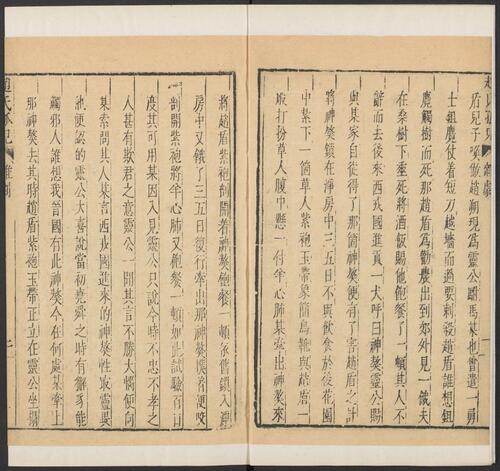 盾兒子喚做趙朔現為靈公駙馬某也曾遣一勇
士鉏麑仗着短刀越墻而過要刺殺趙盾誰想鉏
麑觸樹而死那趙盾為勸農出到郊外見一餓夫
在桑樹下垂死將酒飯賜他飽餐了一頓其人不
辭而去後來西戎國進貢一犬呼曰神獒靈公賜
與某家自從得了那箇神獒便有了害趙盾之計
將神獒鎖在淨房中三五日不與飲食於後花園
中紮下一箇草人紫袍玉帶象簡烏靴與趙盾一
般打扮草人腹中懸一付羊心肺某牽出神獒來
將趙盾紫袍剖開着神獒飽餐一頓依舊鎖入淨
房中又餓了三五日復行牽出那神獒撲着便咬
剖開紫袍將羊心肺又飽餐一頓如此試驗百日
度其可用某因入見靈公只說今時不忠不孝之
人甚有欺君之意靈公一聞其言不勝大惱便向
某索問其人某言西戎國進來的神獒性最靈異
他便認的靈公大喜說當初堯舜之時有獬豸能
觸邪人誰想我晉國有此神獒今在何處某牽上
那神獒去其時趙盾紫袍玉帶正立在靈公坐榻
趙氏孤兒
雜劇
二